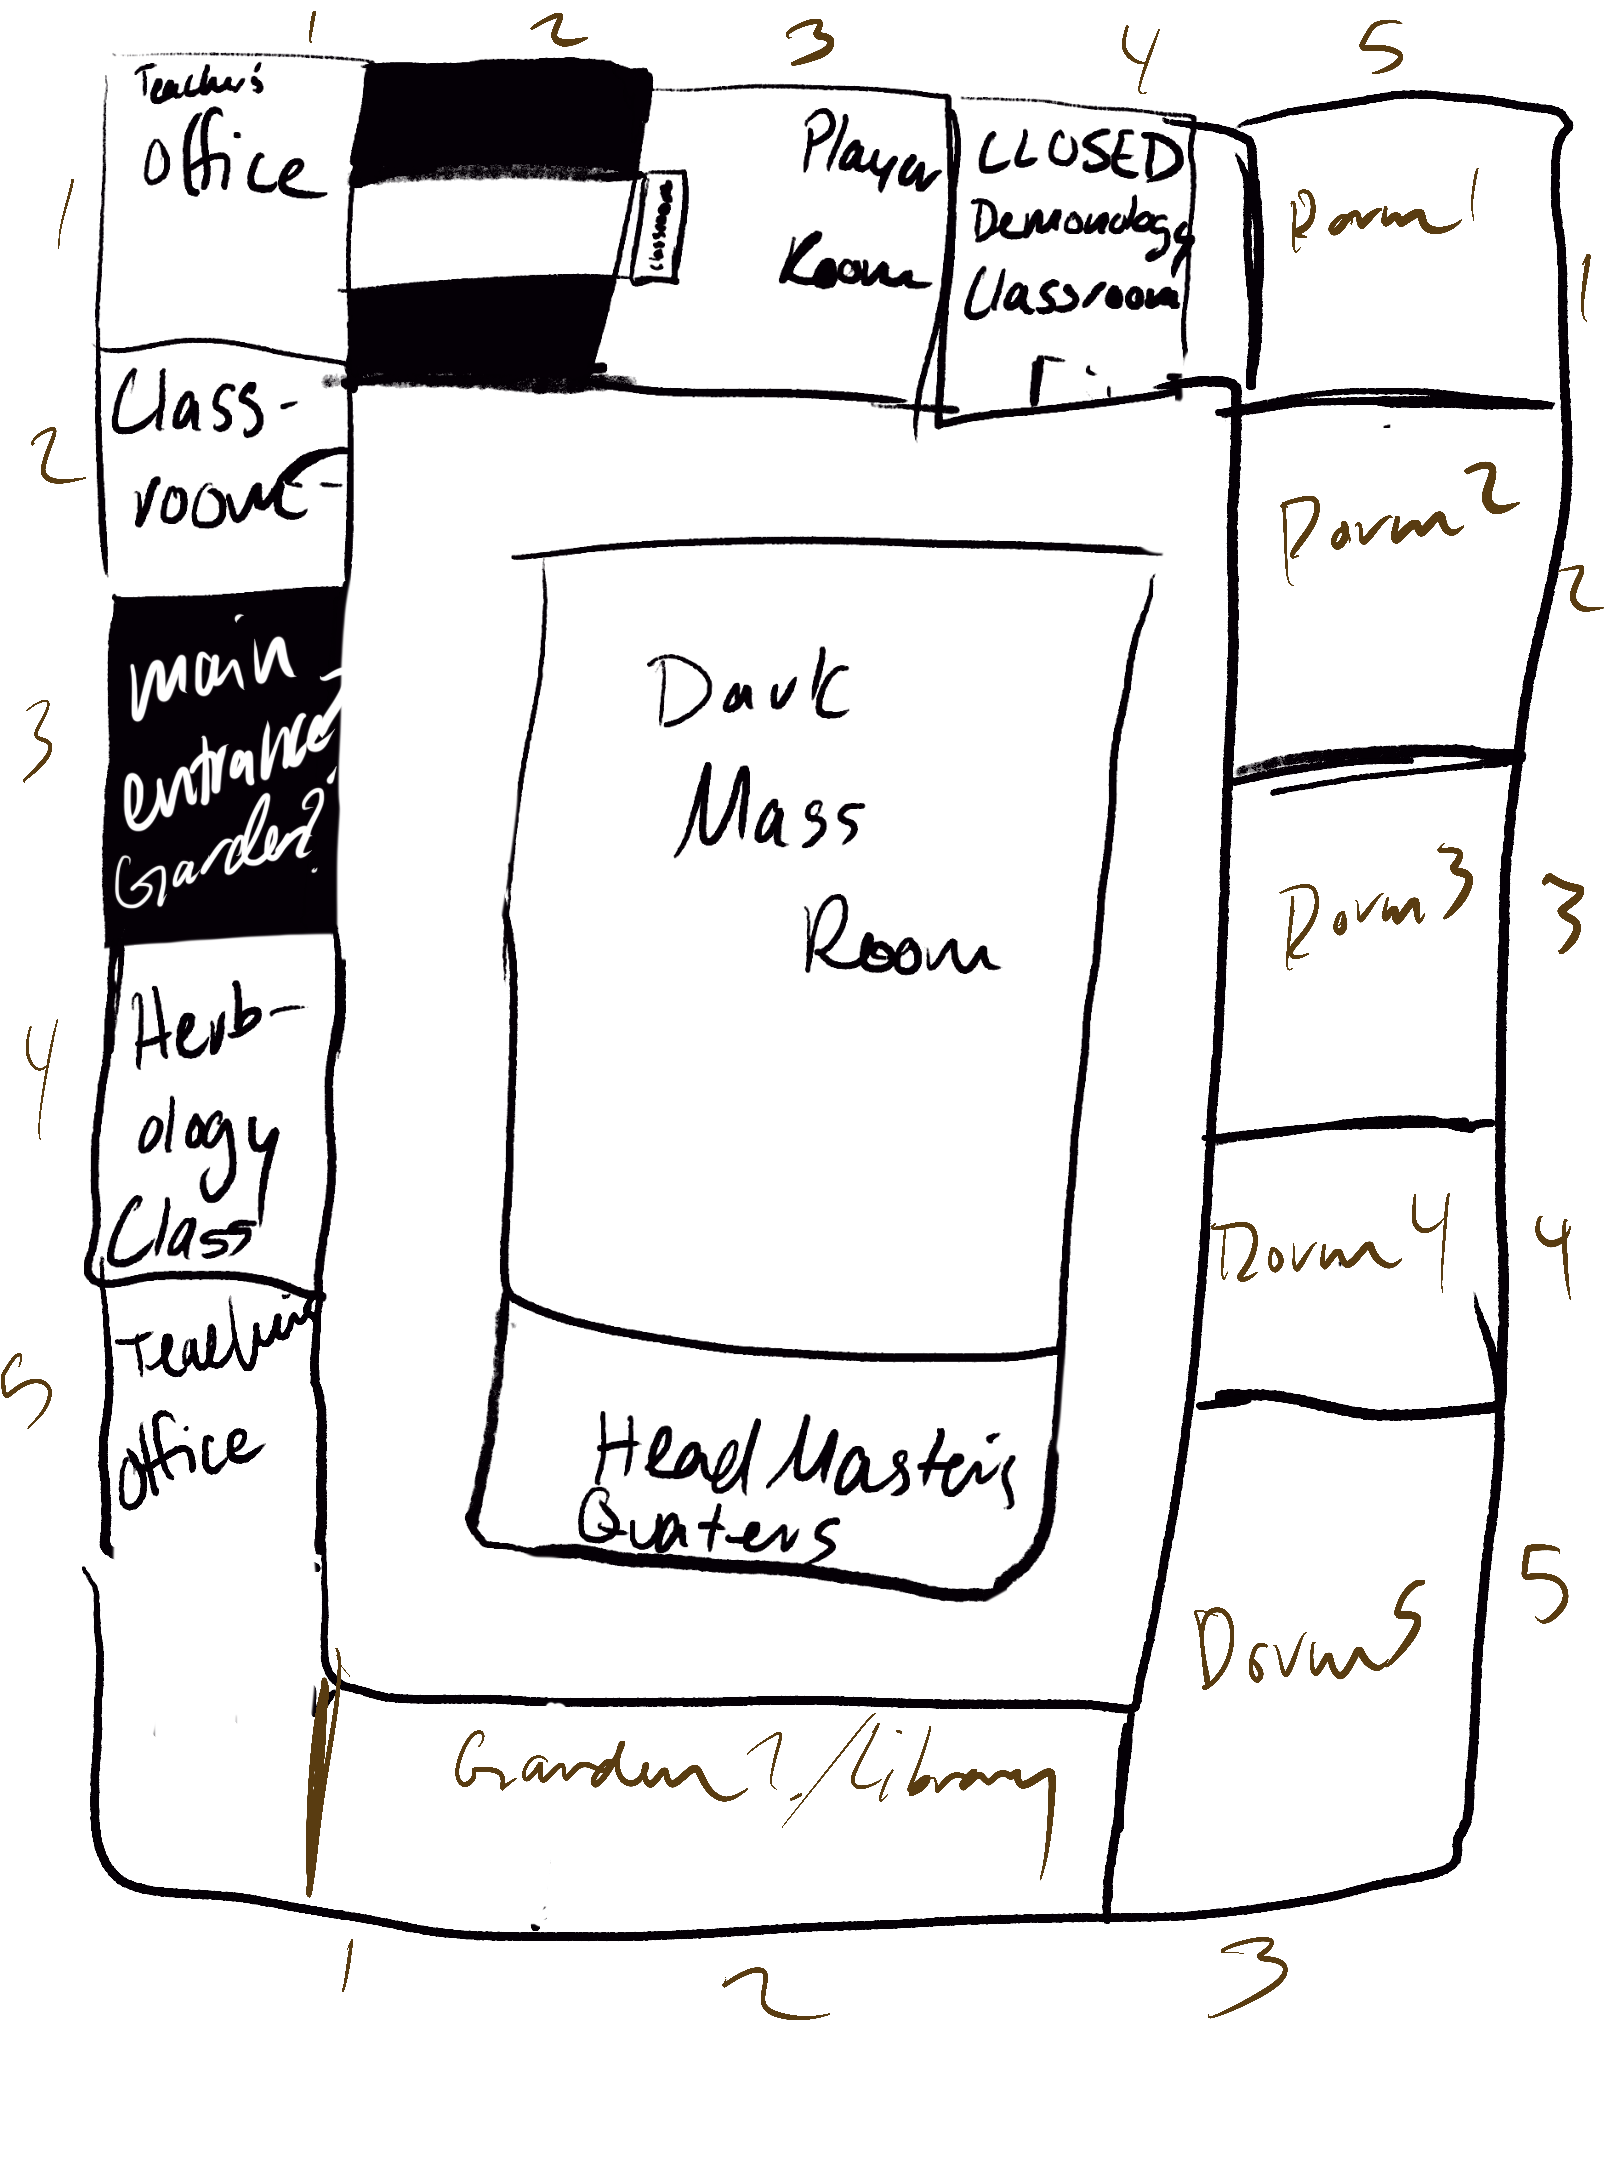 1 2 3 4 5
Teacher's
Office
1
classroom
Player
Room
CLOSED
Demonology
Classroom
Dorm 1
1
Class-
room
2
Dorm 2
2
main
entrance
Garden?
3
Dark
Mass
Room
Dorm 3
3
Herb-
ology
Class
4
Dorm 4
4
Teaching
office
5
Head Master's
Quaters
Dorm 5
5
Garden?/Library
1 2 3